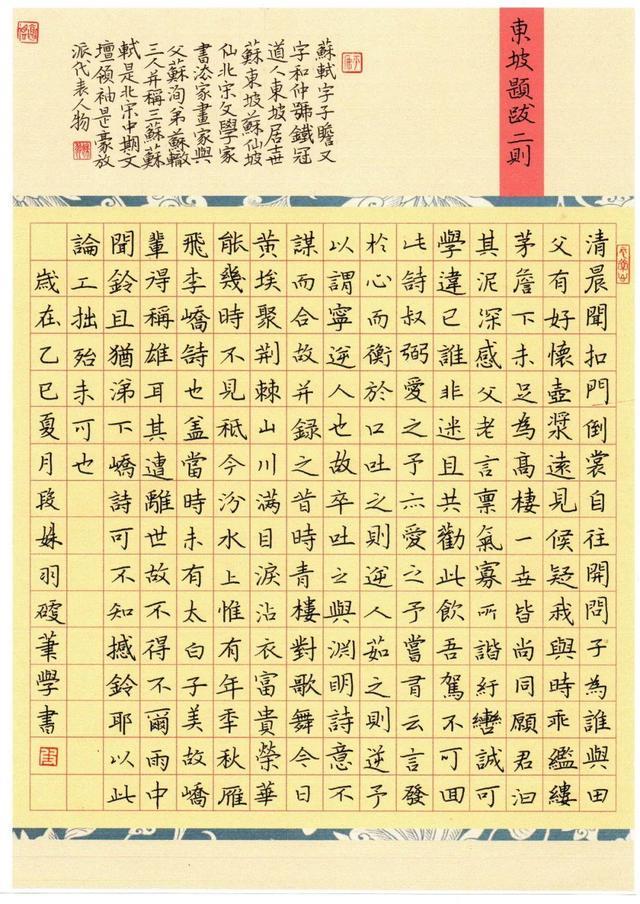 東坡題跋二則
蘇軾字子瞻又
字和仲號鐵冠
道人東坡居世
蘇東坡蘇仙坡
仙北宋文學家
書法家畫家與
父蘇洵弟蘇轍
三人并稱三蘇蘇
軾是北宋中期文
壇領袖是豪放
派代表人物
清晨聞扣門倒裳自往開問子為誰與田
父有好懷壺漿遠見候疑我與時乖繿縷
茅簷下未足為高棲一世皆尚同願君汩
其泥深感父老言稟氣寡所諧紆轡誠可
學違已誰非迷且共勸此飲吾駕不可回
此詩叔弼愛之予亦愛之予嘗有云言發
於心而衝於口吐之則逆人茹之則逆予
以謂寧逆人也故卒吐之與淵明詩意不
謀而合故并錄之昔時青樓對歌舞今日
黃埃聚荊棘山川滿目淚沾衣富貴榮華
能幾時不見秖今汾水上惟有年年秋雁
飛李嶠詩也蓋當時未有太白子美故嶠
輩得稱雄耳其遭離世故不得不爾雨中
聞鈴且猶涕下嶠詩可不知撼鈴耶以此
論工拙殆未可也
歲在乙巳夏月段姝羽硬筆學書